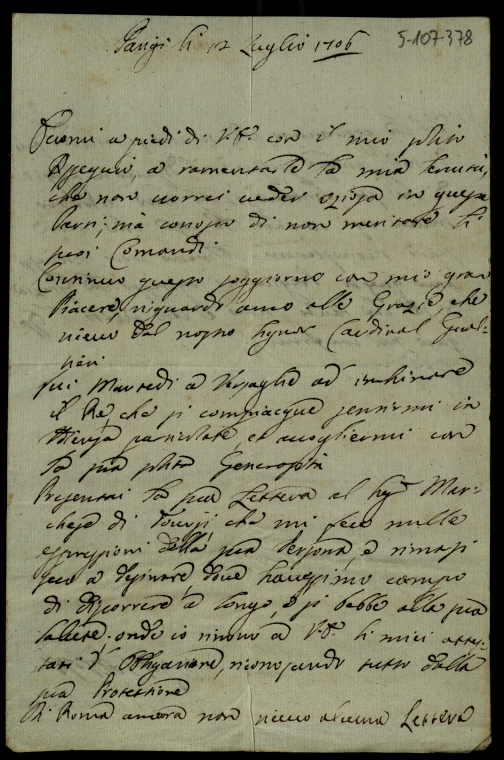 Parigi li 12 Luglio 1706
5-107-378
Torni a piedi di V.E. con il mio solito
ossequio, a ramentarle la mia servitù,
che non vorrei veder oziosa in queste
Parti, mà conosco di non meritare li
suoi Comandi.
Continuo questo soggiorno con mio gran
Piacere, riguardo anco alle Grazie, che
ricevo dal nostro Signor Cardinal Gual-
tieri
fui Martedì a Versaglie ad inchinare
il Rè, che si compiacque sentirmi in
particolare et accogliermi con
la sua solita Generosità
Presentai la sua Lettera al Sigr Mar-
chese di Torcy, che mi fece mille
espressioni della sua Persona, e rimasi
seco a desinare, dove havessimo campo
di discorrere à longo, e si bebbe alla sua
salute. onde io rinovo à V.E. li miei attes-
tati d'obbligazione, riconoscendo tutto dalla
sua Protettione
Di Roma ancora non ricevo alcuna Lettera